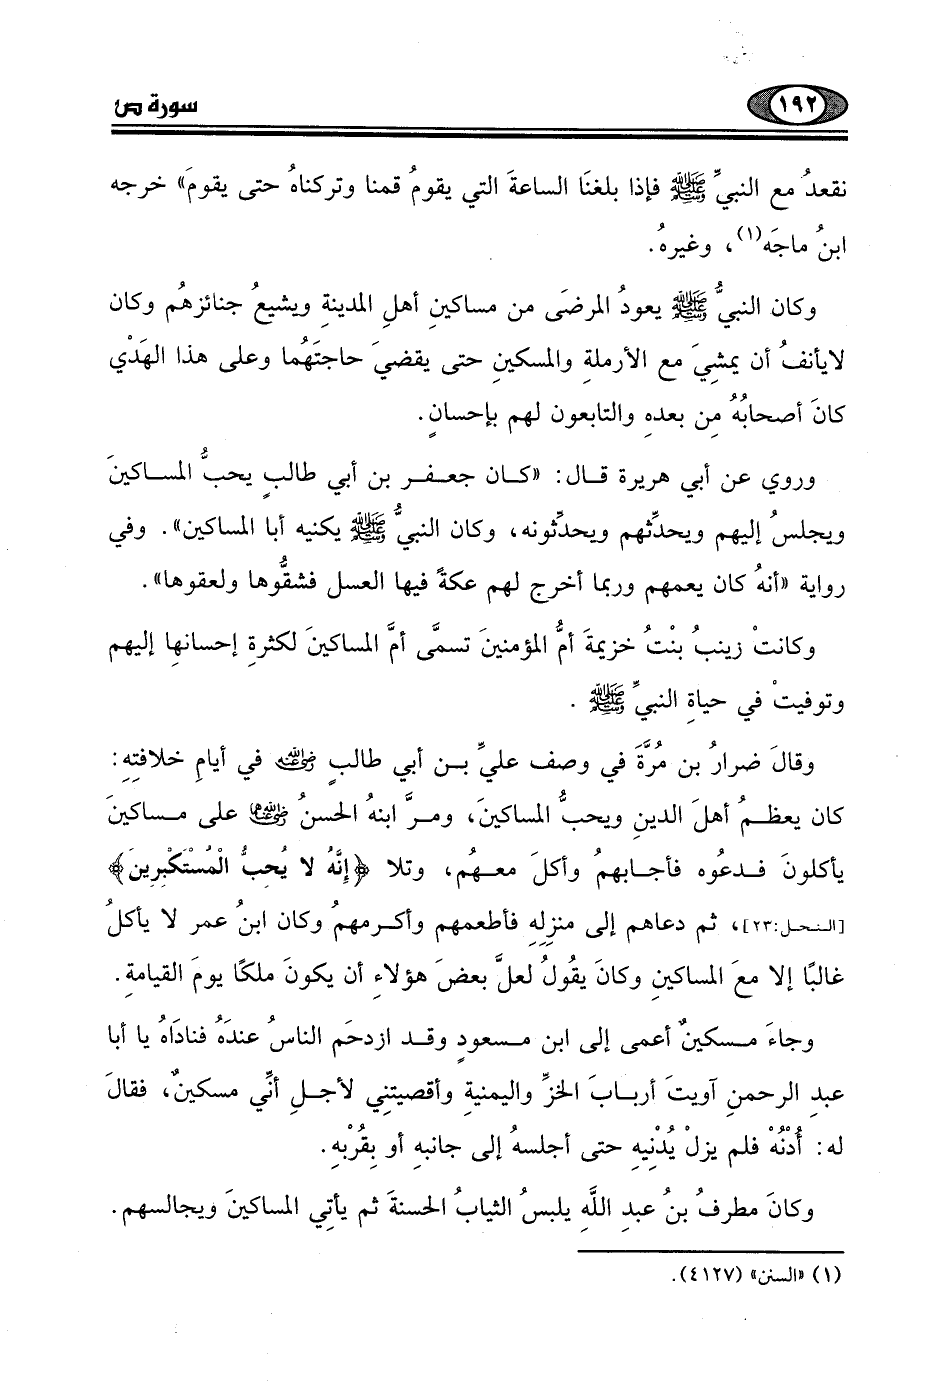 ١٩٢
سورة ص
نقعدُ مع النبيِّ ﷺ فإذا بلغنَا الساعةَ التي يقومُ قمنا وتركناهُ حتى يقومَ» خرجه
ابنُ ماجَه(١)، وغيرهُ.
وكان النبيُّ ﷺ يعودُ المرضَى من مساكينِ أهلِ المدينةِ ويشيعُ جنائزهُم وكان
لايأنفُ أن يمشِيَ مع الأرملةِ والمسكينِ حتى يقضيَ حاجتَهُما وعلى هذا الهَدْي
كانَ أصحابُهُ مِن بعدهِ والتابعون لهم بإحسانٍ.
وروي عن أبي هريرة قال: «كان جعفر بن أبي طالبٍ يحبُّ المساكينَ
ويجلسُ إليهم ويحدثِّهم ويحدِّثونه، وكان النبيُّ ﷺ يكنيه أبا المساكين». وفي
رواية «أنهُ كان يعمهم وربما أخرج لهم عكةً فيها العسل فشقُّوها ولعقوها».
وكانتْ زينبُ بنْتُ خزيمةَ أمُّ المؤمنينَ تسمَّى أمَّ المساكينَ لكثرةِ إحسانِها إليهم
وتوفيتْ في حياةِ النبيِّ ﷺ .
وقالَ ضرارُ بن مُرَّةَ في وصف عليِّ بن أبي طالبٍ رضي الله عنه في أيامِ خلافتهِ:
كان يعظمُ أهلَ الدينِ ويحبُّ المساكينَ، ومرَّ ابنهُ الحسنُ رضي الله عنهما على مساكينَ
يأكلونَ فدعُوه فأجابهمُ وأكلَ معهُم، وتلا ﴿إِنَّهُ لا يُحِبُّ الْمُسْتَكْبِرِينَ﴾
[النحل:٢٣]، ثم دعاهم إلى منزلِهِ فأطعمهم وأكرمهمُ وكان ابنُ عمر لا يأكلُ
غالبًا إلا معَ المساكينِ وكانَ يقُولُ لعلَّ بعضَ هؤلاءِ أن يكونَ ملكًا يومَ القيامةِ.
وجاءَ مسكينٌ أعمى إلى ابن مسعودٍ وقد ازدحَم الناسُ عندَهُ فنادَاهُ يا أبا
عبدِ الرحمنِ آويتَ أربابَ الخزِّ واليمنيةِ وأقصيتني لأجلِ أنِّي مسكينٌ، فقالَ
له: أُدْنُهْ فلم يزلْ يُدْنِيهِ حتى أجلسهُ إلى جانبهِ أو بِقُرْبِهِ.
وكانَ مطرفُ بنُ عبدِ اللَّهِ يلبسُ الثيابُ الحسنةَ ثم يأتِي المساكينَ ويجالسهم.
(١) «السنن» (٤١٢٧).